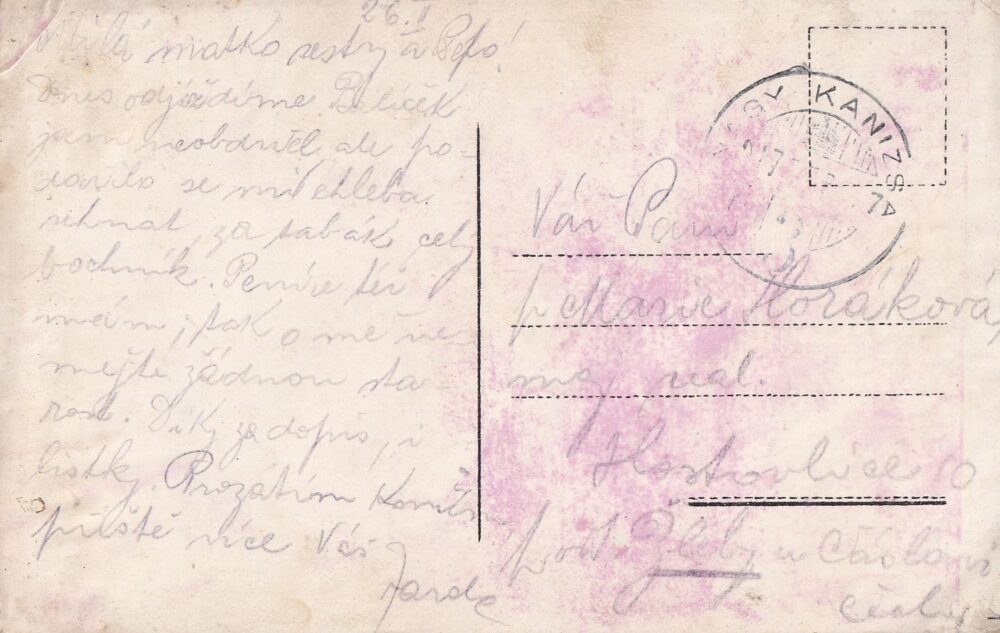 26.I
Milá matko sestry a Pepo!
Dnes odjíždíme Balíček
jsem neobdržel ale po-
dařilo se mi chleba
sehnat, za tabák celý
bochník. Peníze též
mám, tak o mě ne-
mějte žádnou sta-
rost. Díky za dopis, i
lístky. Prozatím končím
příště více Váš
Jarda
NAGY KANIZSA
Vář Paní
p Marie Horáková,
maj real.
Hostovlice o
pošt Žleby u Čáslavi
Čechy